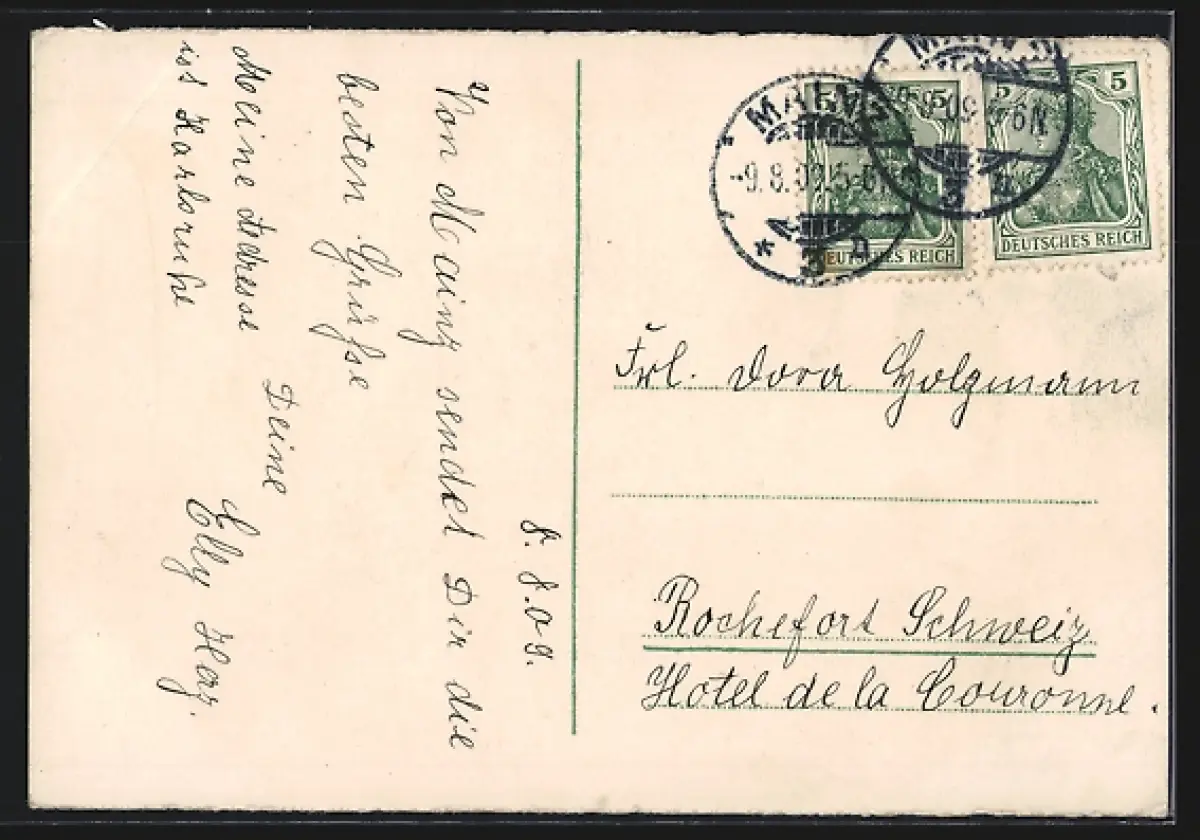 8. 8. 09.
Von Mainz sendet Dir die
besten Grüße
Deine
Elly Herz.
Meine Adresse
ist Karlsruhe
MAINZ
-9.8.09.5-6N
* 3 n
MAINZ
09.5-6N
3 n
5 5
DEUTSCHES REICH
5 5
DEUTSCHES REICH
Frl. Dora Holzmann
Rochefort Schweiz
Hotel de la Couronne.